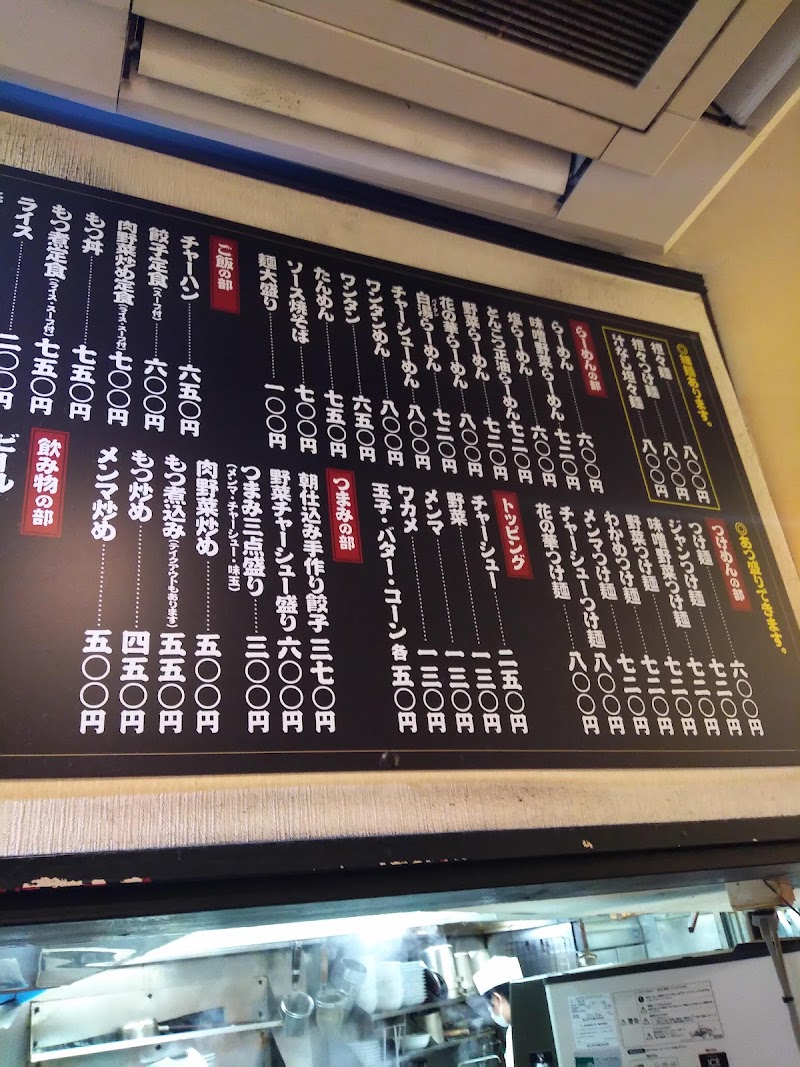 ◎あつ盛りできます。
つけめんの部
つけ麺 六〇〇円
ジャンつけ麺 七二〇円
味噌野菜つけ麺 七二〇円
野菜つけ麺 七二〇円
わかめつけ麺 七二〇円
メンマつけ麺 七二〇円
チャーシューつけ麺 八〇〇円
花の華つけ麺 八〇〇円
担々麺 八〇〇円
担々つけ麺 八〇〇円
汁なし担々麺 八〇〇円
らーめんの部
らーめん 六〇〇円
味噌野菜らーめん 七二〇円
塩らーめん 六〇〇円
とんこつ正油らーめん 七二〇円
野菜らーめん 七二〇円
花の華らーめん 八〇〇円
白湯らーめん 七二〇円
チャーシューめん 八〇〇円
ワンタンめん 八〇〇円
ワンタン 六五〇円
たんめん 七五〇円
ソース焼そば 七〇〇円
麺大盛り 一〇〇円
トッピング
チャーシュー 二五〇円
野菜 一三〇円
メンマ 一三〇円
ワカメ 一三〇円
玉子・バター・コーン 各五〇円
ご飯の部
チャーハン 六五〇円
餃子定食(スープ付) 六〇〇円
肉野菜炒め定食(ライス・スープ付) 七〇〇円
もつ丼 七五〇円
もつ煮定食(ライス・スープ付) 七五〇円
ライス 二〇〇円
つまみの部
朝仕込み手作り餃子 三七〇円
野菜チャーシュー盛り 六〇〇円
つまみ三点盛り 三〇〇円
(メンマ・チャーシュー・味玉)
肉野菜炒め 五〇〇円
もつ煮込み(テイクアウトもあります) 五五〇円
もつ炒め 四五〇円
メンマ炒め 五〇〇円
飲み物の部
ビール